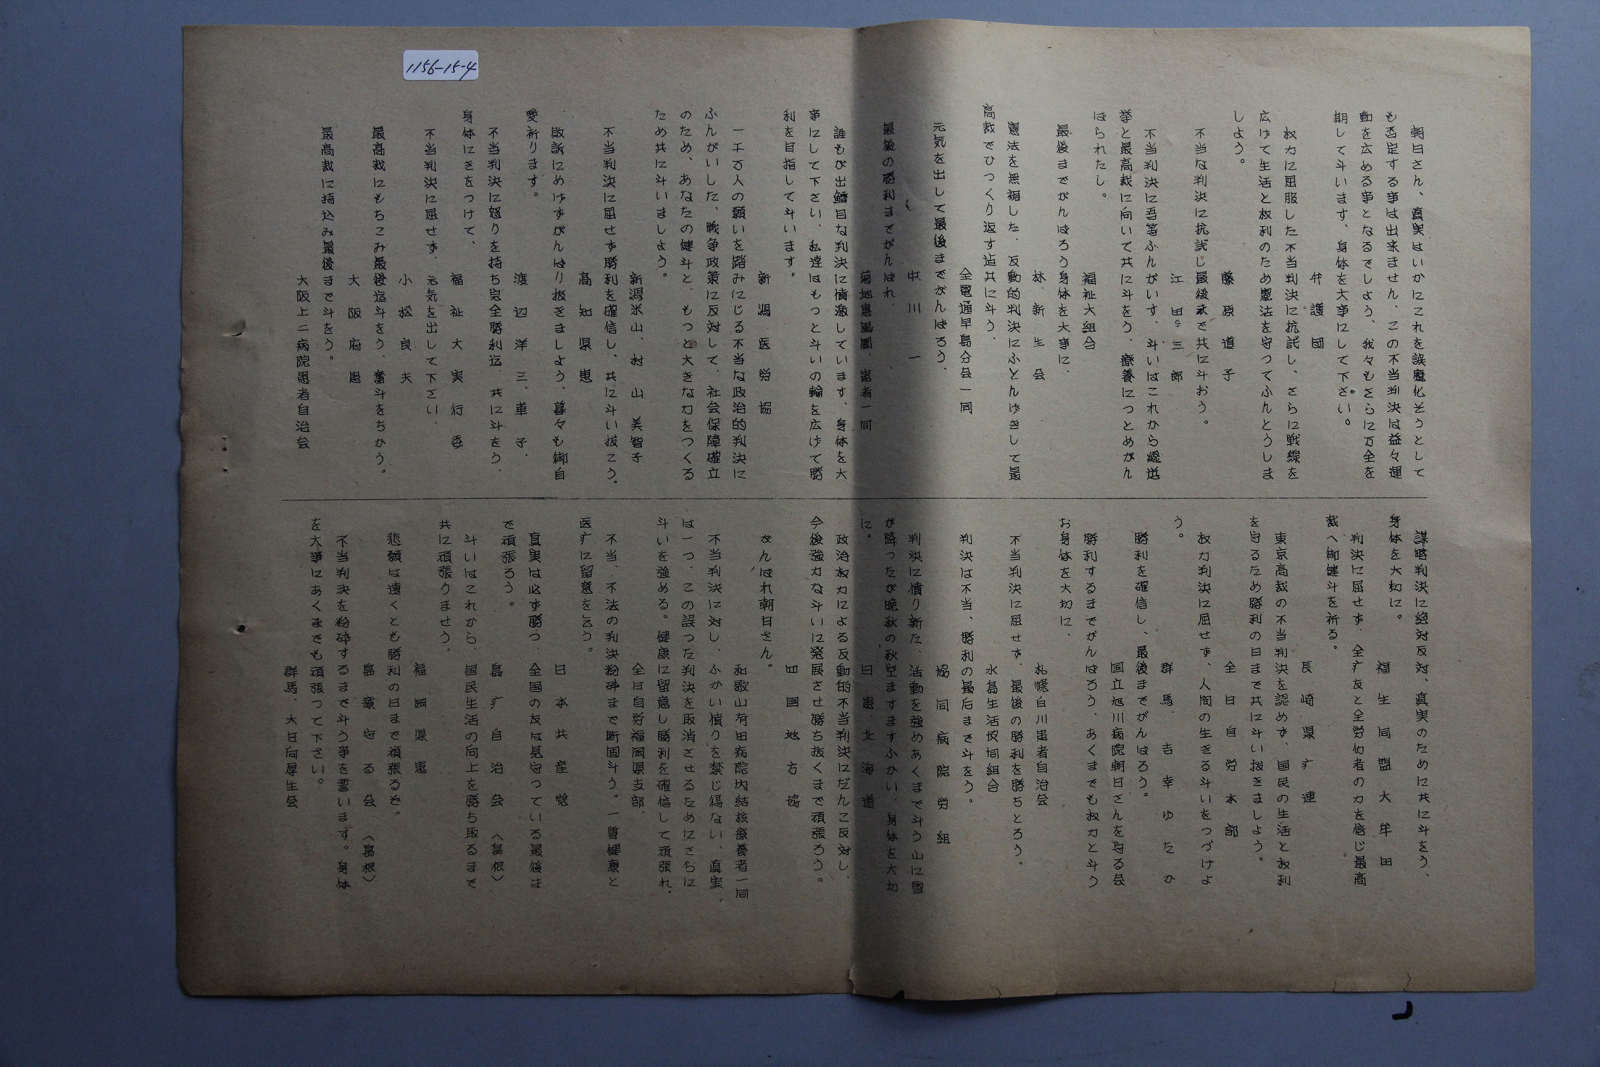 1156-15-4
朝日さん、真実はいかにこれを誤魔化そうとして
も否定する事は出来ません、この不当判決は益々運
動を広める事となるでしよう、我々もさらに万全を
期して斗います、身体を大事にして下さい。
弁護団
权力に屈服した不当判決に抗試し、さらに戦線を
広げて生活と权利のため憲法を守つてふんとうしま
しよう。
藤原道子
不当な判決に抗試し最後まで共に斗おう。
江田三郎
不当判決に吾等ふんがいす、斗いはこれから総選
挙と最高裁に向いて共に斗をう、療養につとめがん
ばられたし。
福祉大組合
最後までがんばろう身体を大事に、
林新生会
憲法を無視した、反動的判決にふとんげきして最
高裁でひつくり返す迠共に斗う、
全電通早島分会一同
元気を出して最後までがんばろう、
中川一
最後の勝利までがんばれ、
菊池恵楓園、患者一同
誰もが出鱈目な判決に憤激しています、身体を大
事にして下さい、私達はもっと斗いの輪を広げて勝
利を目指して斗います。
新潟医労協
一千万人の願いを踏みにじる不当な政治的判決に
ふんがいした、戦争政策に反対して、社会保障確立
のため、あなたの健斗と、もっと大きな力をつくる
ため共に斗いましよう。
新潟米山、村山美智子
不当判決に屈せず勝利を確信し、共に斗い抜こう、
高知県患
敗訴にめげずがんばり抜きましよう、暮々も御自
愛祈ります。
渡辺洋三、車子、
不当判決に怒りを持ち完全勝利迄、共に斗をう、
身体にきをつけて、
福祉大実行委
不当判決に屈せず、元気を出して下さい、
小松良夫
最高裁にもちこみ最後迄斗をう、奮斗をちかう。
大阪府患
最高裁に持込み最後まで斗をう。
大阪上二病院患者自治会
謀略判決に絶対反対、真実のために共に斗をう、
身体を大切に。
福生同盟大牟田
判決に屈せず、全疒友と全労仂者の力を信じ最高
裁へ御健斗を祈る。
長崎県疒連
東京高裁の不当判決を認めず、国民の生活と权利
を守るため勝利の日まで共に斗い抜きましよう。
全日自労本部
权力判決に屈せず、人間の生きる斗いをつづけよ
う。
群馬、吉幸ゆたか
勝利を確信し、最後までがんばろう。
国立旭川病院朝日さんを守る会
勝利するまでがんばろう、あくまでも权力と斗う
お身体を大切に、
札幌白川患者自治会
不当判決に屈せず、最後の勝利を勝ちとろう。
水島生活協同組合
判決は不当、勝利の最后まで斗をう。
協同病院労組
判決に憤り新た、活動を強めあくまで斗う山に雪
が降ったが晩秋の秋空ますますふかい、身体を大切
に。
日患北海道
政治权力による反動的不当判決にだんこ反対し、
今後強力な斗いに発展させ勝ち抜くまで頑張ろう。
四国地方協
がんばれ朝日さん。
和歌山有田病院内結核療養者一同
不当判決に対し、ふかい憤りを禁じ得ない、真実
は一つ、この誤った判決を取消させるためにさらに
斗いを強める。健康に留意し勝利を確信して頑張れ、
全日自労福岡県支部、
不当、不法の判決粉砕まで断固斗う。一層健康と
医疒に留意をこう。
日本共産党
真実は必ず勝つ、全国の友は見守っている最後ま
で頑張ろう。
島疒自治会（島根）
斗いはこれから、国民生活の向上を勝ち取るまで
共に頑張りませう、
福岡県患
悲願は遠くとも勝利の日まで頑張るぞ。
島療守る会（島根）
不当判決を粉砕するまで斗う事を誓います。身体
を大事にあくまでも頑張って下さい。
群馬、大日向厚生会